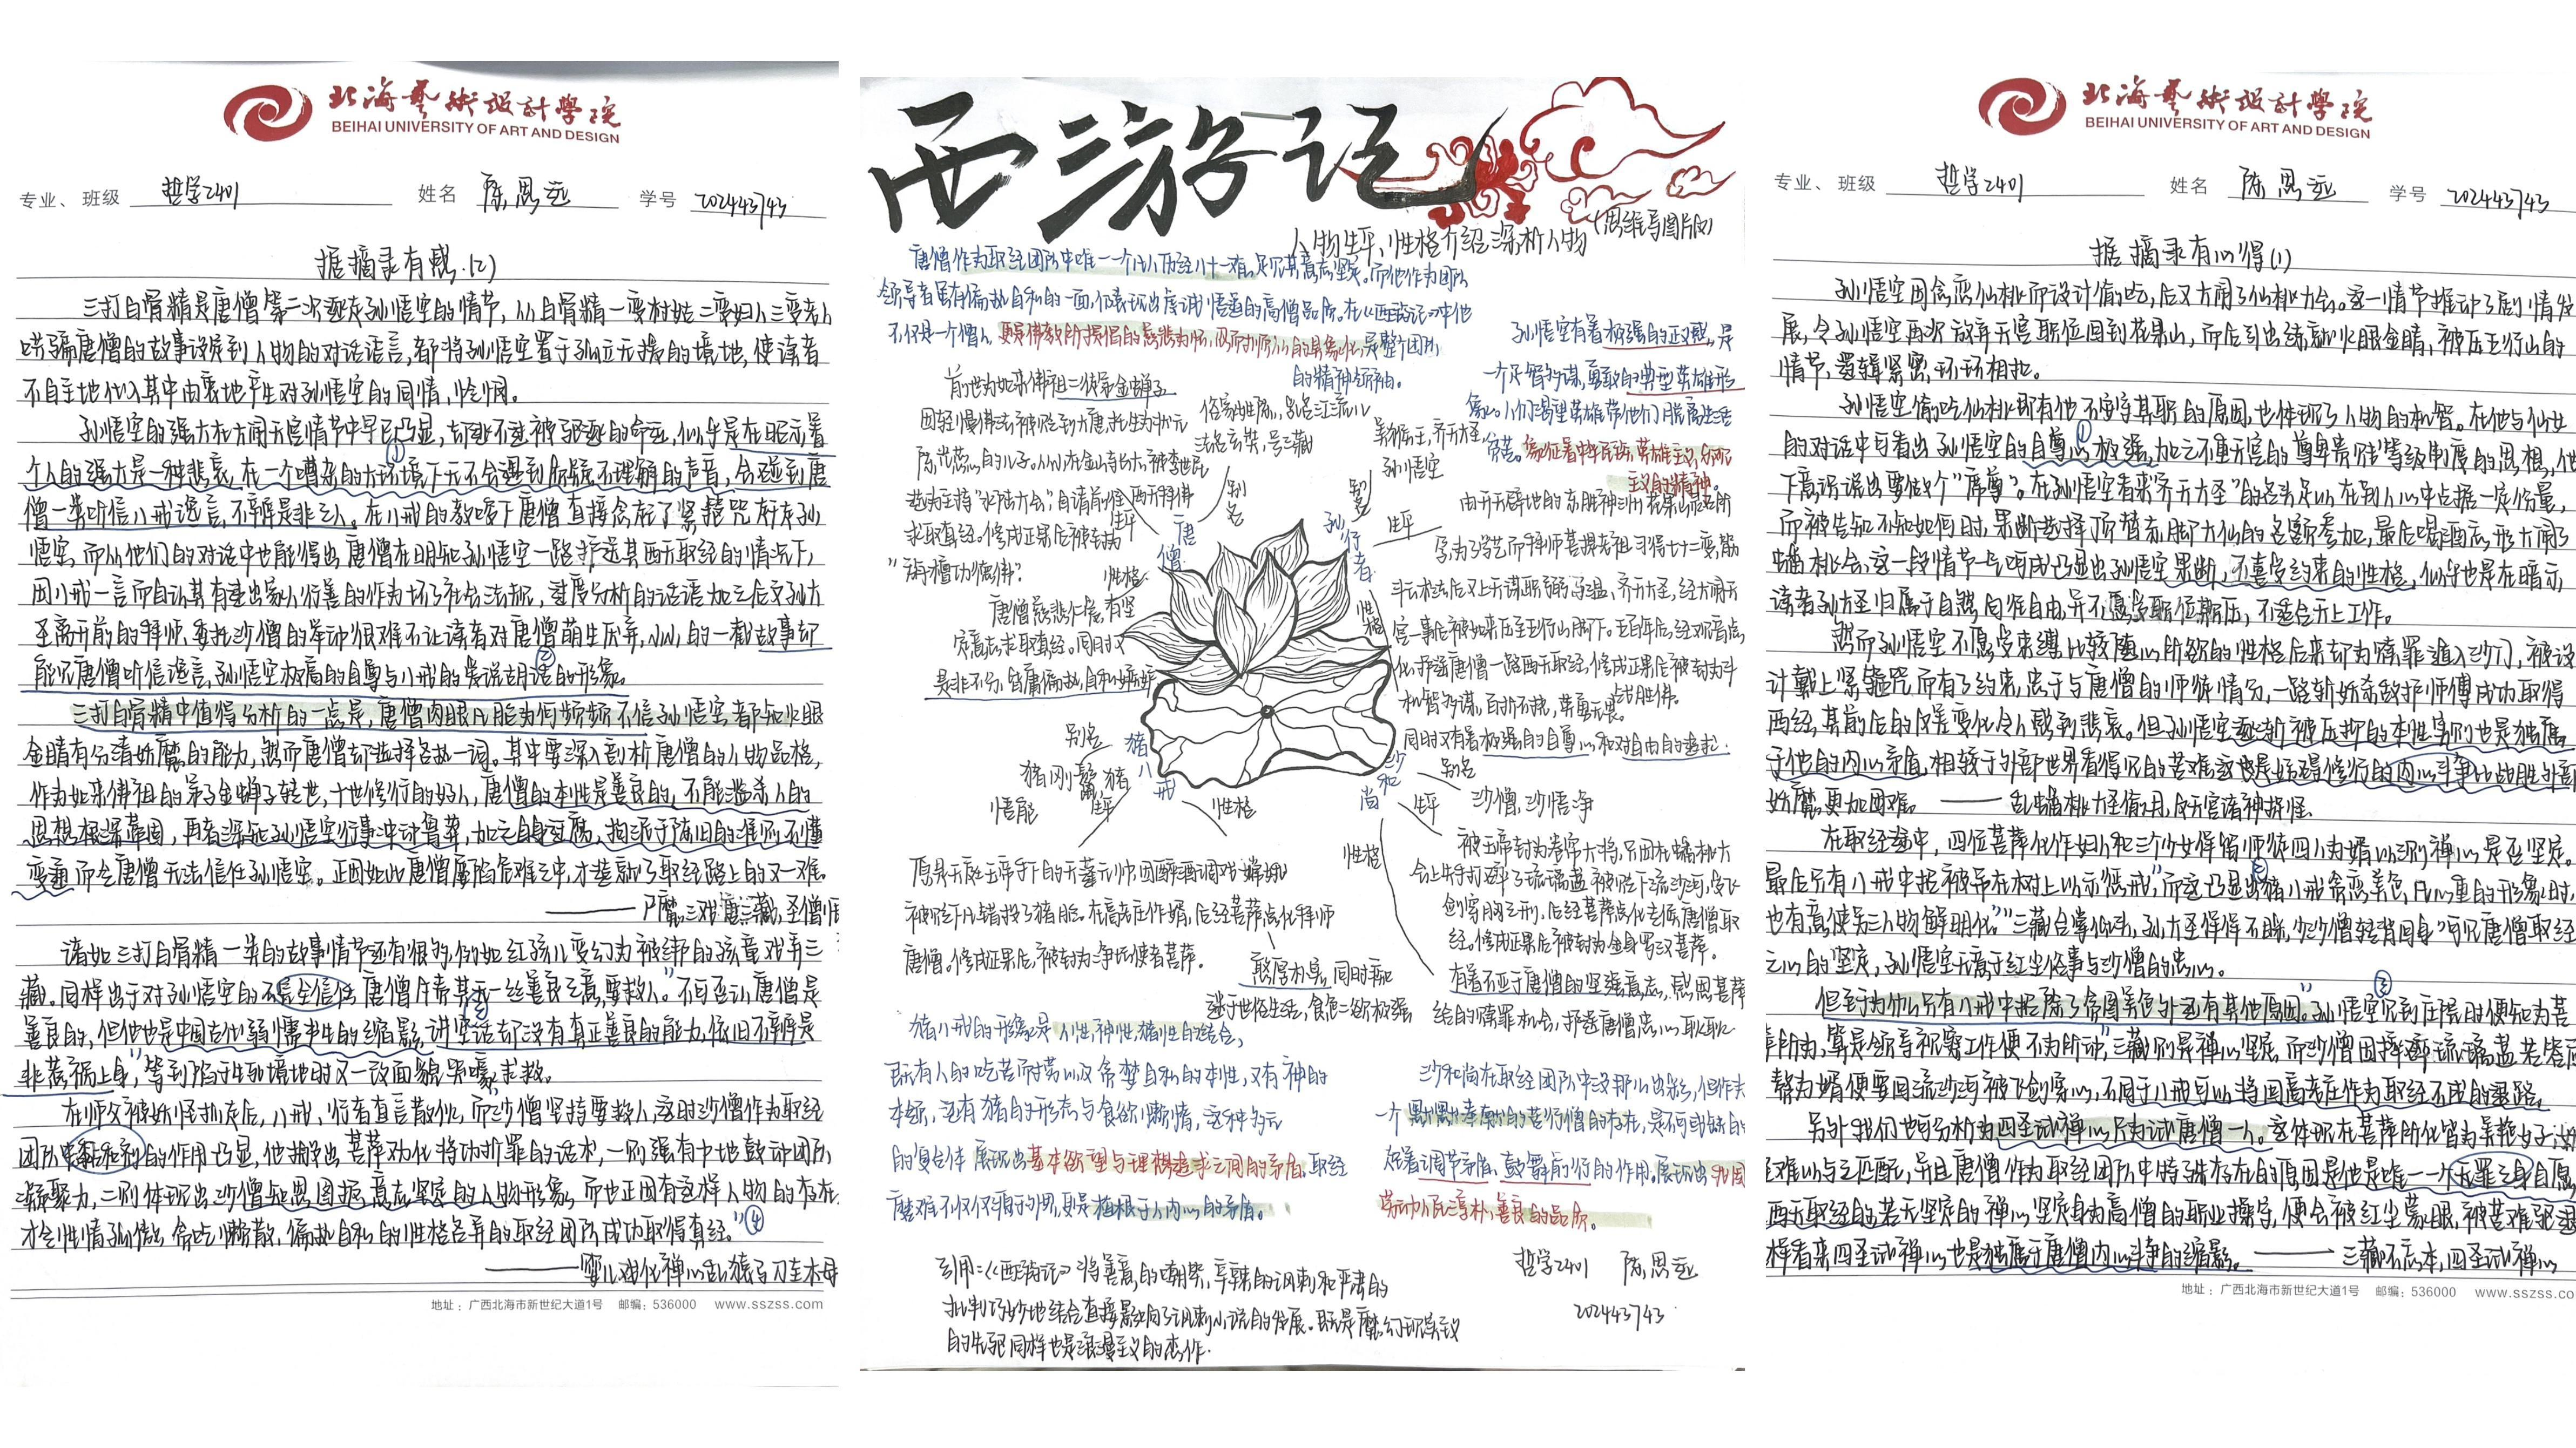 北海藝術設計學院
BEIHAI UNIVERSITY OF ART AND DESIGN
专业、班级 哲学2401 姓名 陈思远 学号 202443743
据摘录有感.(2)
三打白骨精是唐僧第二次逐走孙悟空的情节,从白骨精一变村姑二变妇人三变老人
哄骗唐僧的故事设定到人物的对话语言,都将孙悟空置于孤立无援的境地,使读者
不自主地代入其中由衷地产生对孙悟空的同情,怜悯。
孙悟空的强大在大闹天宫情节中早已凸显,却逃不过被驱逐的命运,似乎是在昭示着
个人的强大是一种悲哀,在一个嘈杂的大环境下无不会遇到质疑不理解的声音,会碰到唐
①
僧一类听信八戒谗言,不辨是非之人。在八戒的教唆下唐僧直接念起了紧箍咒赶走孙
悟空,而从他们的对话中也能得出,唐僧在明知孙悟空一路护送其西天取经的情况下,
因八戒一言而自认其有违出家人行善的作为坏了社会法规,过度分析的话语加之后文孙大
圣离开前的拜师,委托沙僧的举动很难不让读者对唐僧萌生厌弃,小小的一截故事却
能见唐僧听信谗言,孙悟空极高的自尊与八戒的美说胡语的形象。
②
三打白骨精中值得分析的一点是,唐僧肉眼凡胎为何频频不信孙悟空,都知火眼
金睛有分清妖魔的能力,然而唐僧却选择各执一词。其中要深入剖析唐僧的人物品格,
作为如来佛祖的弟子金蝉子转世,十世修行的好人,唐僧的本性是善良的,不能滥杀人的
思想根深蒂固,再者深知孙悟空行事冲动鲁莽,加之自身迂腐,拘泥于陈旧的准则不懂
变通而令唐僧无法信任孙悟空。正因如此唐僧屡陷危难之中,才造就了取经路上的又一难。
——尸魔三戏唐三藏,圣僧恨
诸如三打白骨精一类的故事情节还有很多,例如红孩儿变幻为被绑的孩童戏弄三
藏。同样出于对孙悟空的不完全信任唐僧斥责其无一丝善良之意,要救人。不可否认唐僧是
③
善良的,但他也是中国古代弱懦书生的缩影,讲空话却没有真正善良的能力,依旧不辨是
非惹祸上身,等到陷于生死境地时又一改面貌哭嚎求救。
在师父被妖怪抓走后,八戒、行者直言散伙,而沙僧坚持要救人,这时沙僧作为取经
团队中黏和剂的作用凸显,他搬出菩萨劝化将功折罪的话术,一则强有中地鼓动团队
凝聚力,二则体现出沙僧知恩图报意志坚定的人物形象,而也正因有这样人物的存在,
才令性情孤傲,贪吃懒散,偏执自私的性格各异的取经团队成功取得真经。④
——婴儿戏化禅心乱猿马刀圭木母
地址：广西北海市新世纪大道1号 邮编：536000 www.sszss.com
西游记
(思维导图版)
人物生平、性格介绍深析人物
唐僧作为取经团队中唯一一个凡人历经八十一难,足见其意志坚定。而他作为团队
领导者虽有偏执自私的一面,仍表现出虔诚悟道的高僧品质。在《西游记》中他
不仅是一个僧人,更是佛教所提倡的慈悲为怀,以而抑
的具象化,是整个团队
的精神领袖。
前世为如来佛祖二徒弟金蝉子
因轻慢佛法被贬到大唐,托生为状元
陈光蕊的儿子。从小在金山寺长大,被李世民
选为主持"水陆大会",自请前往西天拜佛
求取真经。修成正果后被封为
"旃檀功德佛"。
俗家姓陈,乳名江流儿
法名玄奘,号三藏
别名
生平
唐僧
性格
唐僧慈悲仁爱,有坚
定意志求取真经。同时又
是非不分,昏庸偏执,自私懦弱
孙悟空有着极强的正义感,是
一个足智多谋,勇敢的典型英雄形
象。人们渴望英雄带他们脱离生活
穷苦。象征着中华民族英雄主义,
主义的精神。
美猴王,齐天大圣,
孙悟空
别名
孙行者
生平
由开天辟地的东胜神洲花果山灵石所
孕,为了学艺而拜师菩提老祖习得七十二变,筋
斗云术法后又上天谋职弼马温、齐天大圣,经大闹天
宫一事后被如来压至五行山脚下。五百年后,经观音点
化护送唐僧一路西天取经,修成正果后被封为斗
战胜佛。
性格
机智多谋,百折不挠,英勇无畏。
同时又有着极强的自尊心和对自由的追求.
猪八戒
别名
猪刚鬣,猪
悟能
生平
性格
原是天庭玉帝手下的天蓬元帅因醉酒调戏嫦娥
被贬下凡错投了猪胎。在高老庄作婿,后经菩萨点化拜师
唐僧。修成正果后,被封为净坛使者菩萨。
憨厚朴实,同时乖
迷于世俗生活,食色之欲极强
猪八戒的形象是人性,神性,猪性的结合,
既有人的吃苦耐劳以及贪婪自私的本性,又有神的
本领,还有猪的形态与食欲懒惰,这种多元
的复合体展现出基本欲望与理想追求之间的矛盾。取经
磨难不仅仅源于外界,更是植根于人内心的矛盾。
沙和尚
别名
沙僧,沙悟净
生平
被玉帝封为卷帘大将,只因在蟠桃大
会上失手打碎了琉璃盏被贬下流沙河,受飞
剑穿胸之刑,后经菩萨点化去保唐僧取
经。修成正果后被封为金身罗汉菩萨。
性格
有着不亚于唐僧的坚强意志,感恩菩萨
给的赎罪机会,护送唐僧忠心耿耿
沙和尚在取经团队中没那么出彩,但作为
一个默默奉献的苦行僧的存在,是不可或缺的
起着调节矛盾、鼓舞前行的作用。展现出中国
劳动人民淳朴,善良的品质。
引用:《西游记》将善意的嘲笑,辛辣的讽刺和严肃的
批判巧妙地结合直接影响了讽刺小说的发展。既是魔幻现实主义
的先驱同样也是浪漫主义的杰作.
哲学2401 陈思远
202443743
北海藝術設計學院
BEIHAI UNIVERSITY OF ART AND DESIGN
专业、班级 哲学2401 姓名 陈思远 学号 202443743
据摘录有心得(1)
孙悟空因贪恋仙桃而设计偷吃,后又大闹了仙桃大会。这一情节推动了剧情发
展,令孙悟空再次放弃天宫职位回到花果山,而后引出练就火眼金睛,被压五行山的
情节,逻辑紧密,环环相扣。
孙悟空偷吃仙桃即有他不安守其职的原因,也体现了人物的机智。在他与仙女
的对话中可看出孙悟空的自尊心极强,加之不重天宫的尊卑贵贱等级制度的思想,他
①
下意识说出要做个"席尊"。在孙悟空看来"齐天大圣"的名头足以在别人心中占据一定份量,
而被告知不知如何时,果断选择顶替赤脚大仙的名额参加,最后喝酒忘形大闹了
蟠桃会,这一段情节一气呵成凸显出孙悟空果断,不喜受约束的性格,似乎也是在暗示
读者孙大圣归属于自然,向往自由,并不愿受职位欺压,不适合天上工作。
然而孙悟空不愿受束缚比较随心所欲的性格后来却为赎罪遁入沙门,被设
计戴上紧箍咒而有了约束,忠于与唐僧的师徒情分,一路斩妖杀敌护师傅成功取得
西经,其前后的反差变化令人感到悲哀。但孙悟空逐渐被压折的本性实则也是独属
于他的内心矛盾,相较于外部世界看得见的苦难,这也是妨碍修行的内心斗争比战胜外部
妖魔更加困难。——乱蟠桃大圣偷丹,反天宫诸神捉怪.
在取经途中,四位菩萨化作妇人和三个少女保留师徒四人为婿以测禅心是否坚定。
最后只有八戒中招被吊在树上以示惩戒,而这凸显出猪八戒贪恋美色,凡心重的形象时,
②
也有意使另三人物鲜明化。"三藏合掌低头,孙大圣佯佯不睬,少沙僧转背回身"可见唐僧取经
之心的坚定,孙悟空无意于红尘俗事与沙僧的忠心。
③
但至于为什么只有八戒中招除了贪图美色外还有其他原因。孙悟空见到庄院时便知为菩
萨所为,算是领导视察工作便不为所动,三藏则是禅心坚定,而沙僧因摔碎琉璃盏若答应
帮为婿便要回流沙河被飞剑穿心,不同于八戒可以将回高老庄作为取经不成的退路。
另外我们也可分析为四圣试禅心只为试唐僧一人。这体现在菩萨所化皆为美艳女子,
难以与之匹配,并且唐僧作为取经团队中特殊存在的原因是他是唯一一个无罪之身自愿
西天取经的,若无坚定的禅心坚定身为高僧的职业操守,便会被红尘蒙眼,被苦难驱退
样看来四圣试禅心也是独属于唐僧内心斗争的缩影。——三藏不忘本,四圣试禅心
地址：广西北海市新世纪大道1号 邮编：536000 www.sszss.co